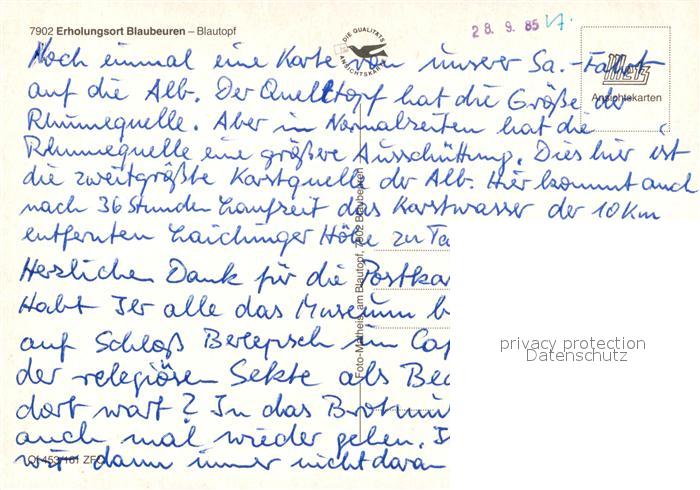 7902 Erholungsort Blaubeuren – Blautopf
DIE QUALITÄTS ANSICHTSKARTE
28. 9. 85
Metz
Ansichtskarten
Noch einmal eine Karte von unserer Sa.-Fahrt
auf die Alb. Der Quelltopf hat die Größe der
Rhumequelle. Aber in Normalzeiten hat die
Rhumequelle eine größere Ausschüttung. Dies hier ist
die zweitgrößte Karstquelle der Alb. Hier kommt auch
nach 36 Stunden Laufzeit das Karstwasser der 10 Km
entfernten Laichinger Höhle zu Ta
Herzlichen Dank für die Postkar
Habt Ier alle das Museum b
auf Schloß Berlepsch im Cap
der religiösen Sekte als Bec
dort wart? In das Brotmu
auch mal wieder gehen. I
wir dann immer nicht daran
Foto-Matheis, am Blautopf, 7902 Blaubeuren
453/161 ZFO
privacy protection
Datenschutz